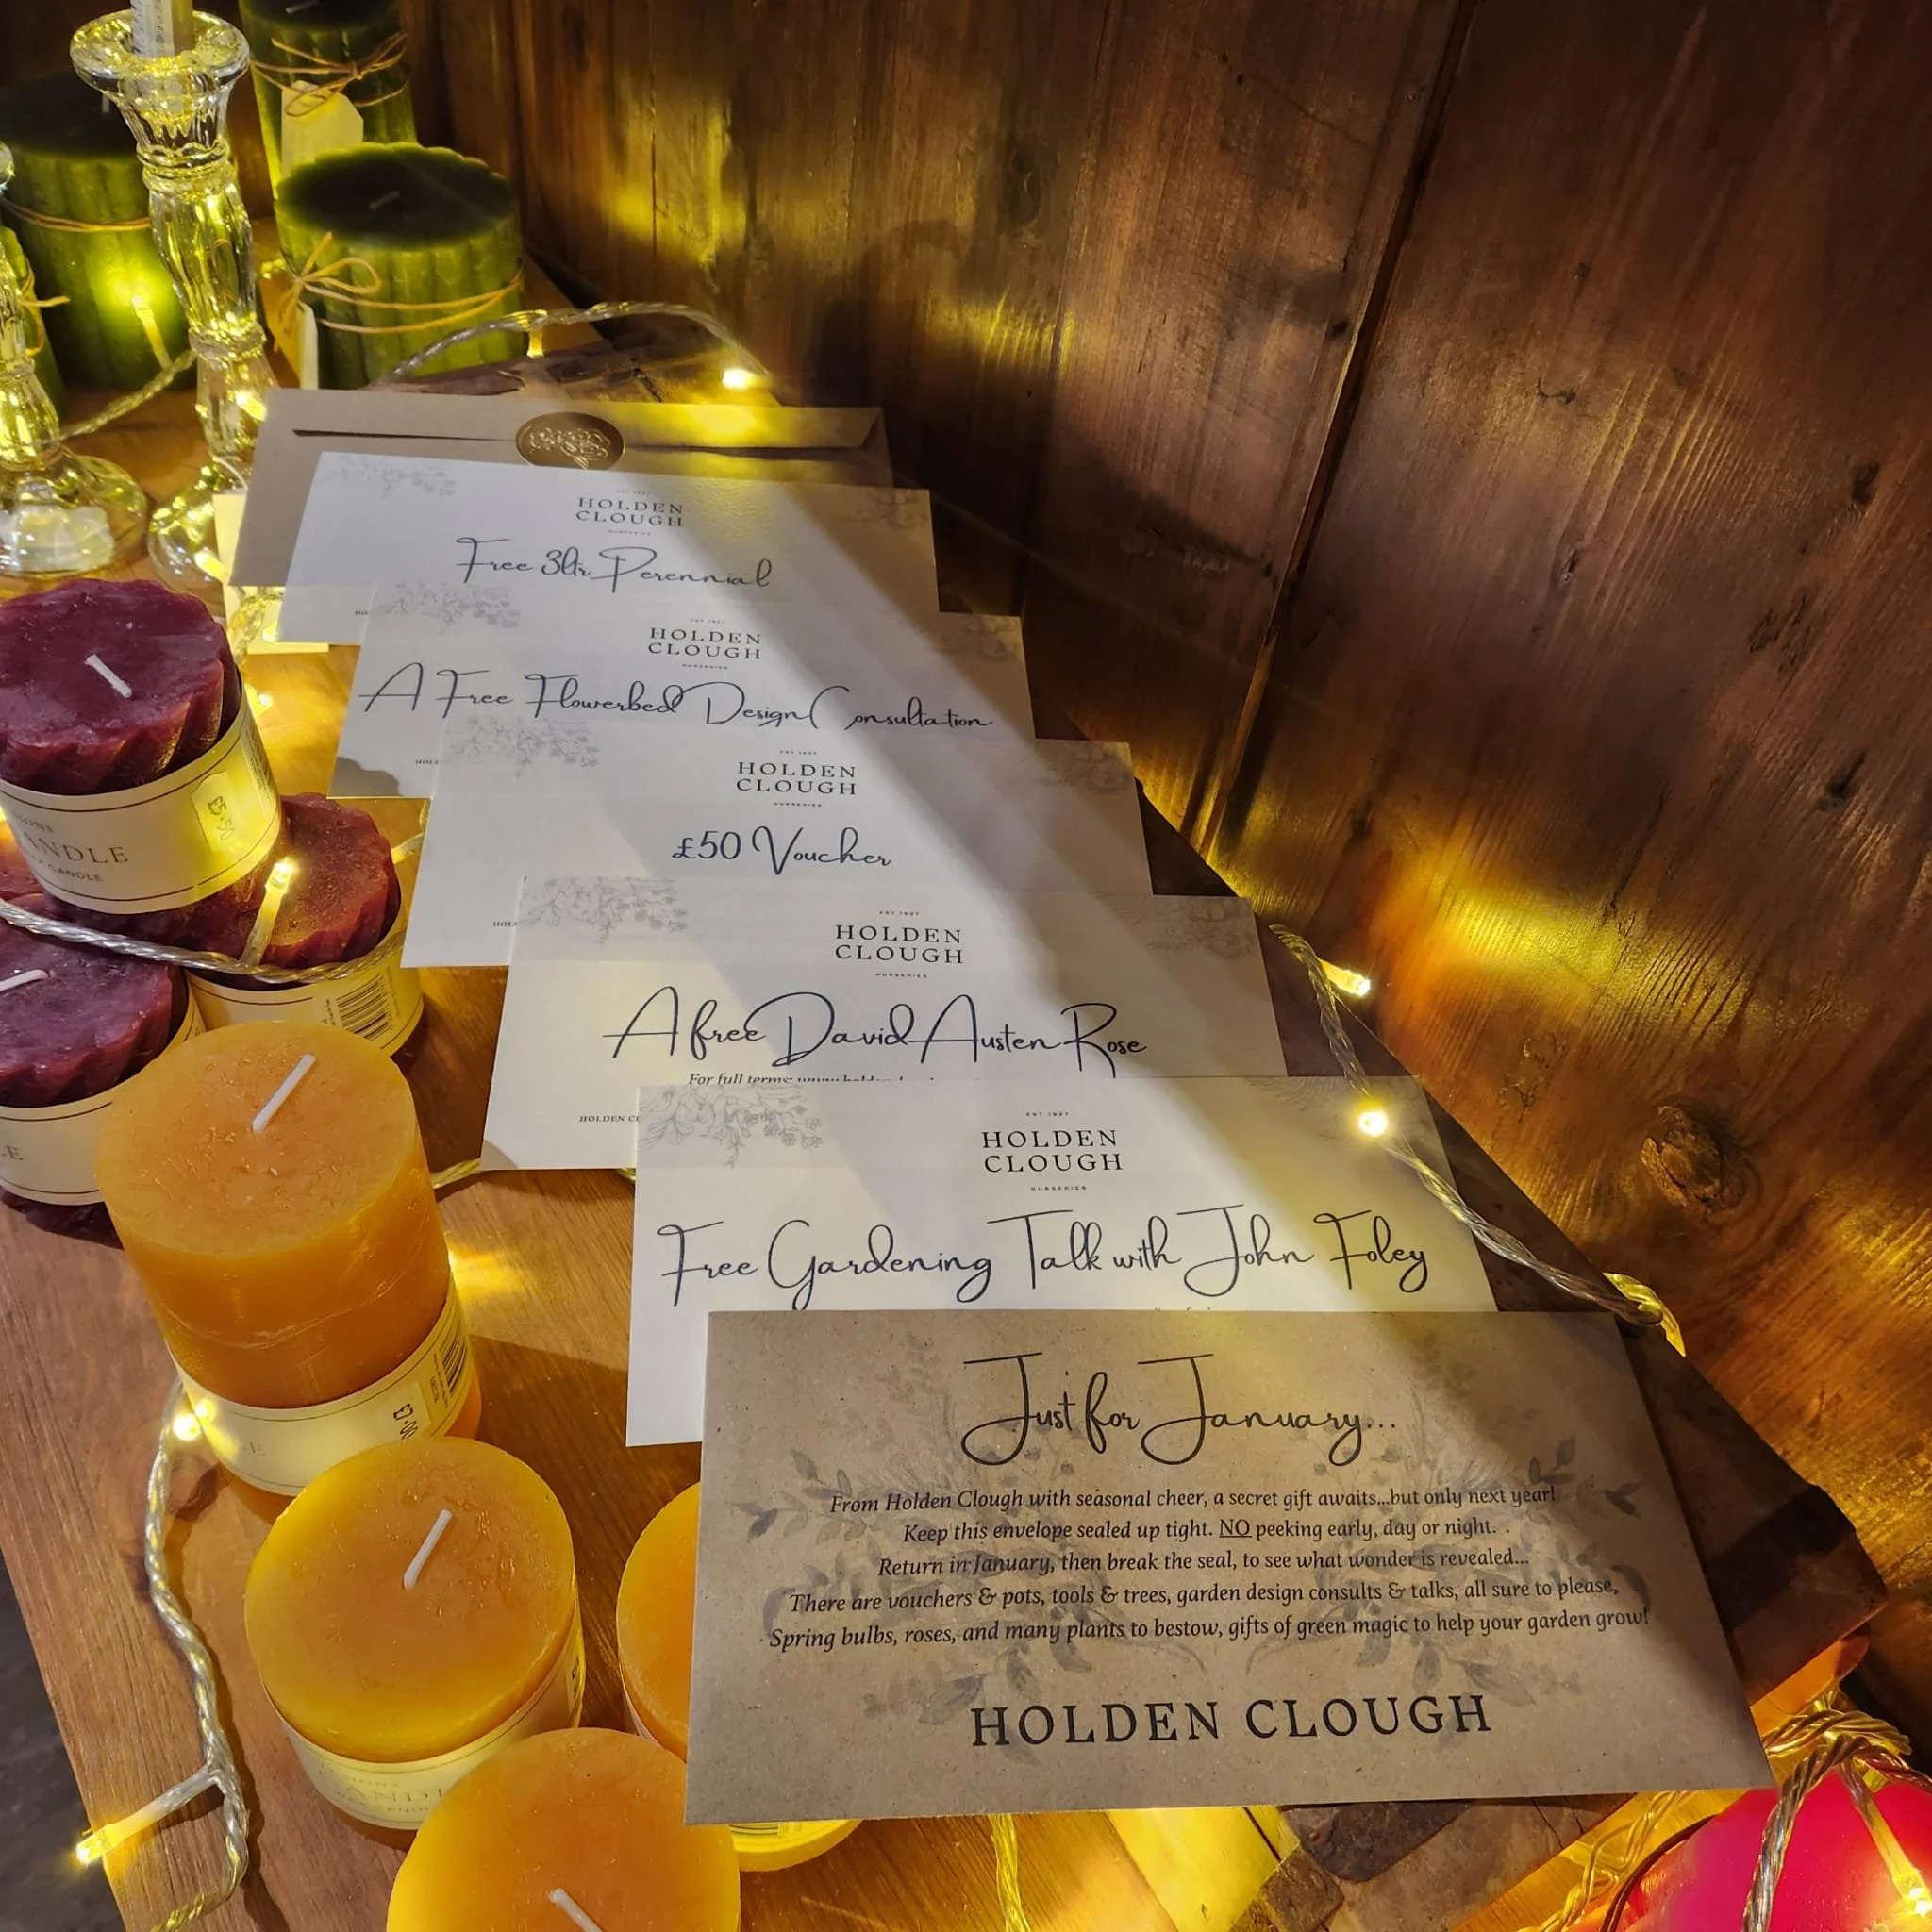 HOLDEN
CLOUGH
NURSERIES
Free 3ltr Perennial
EST 1927
HOLDEN
CLOUGH
NURSERIES
A Free Flowerbed Design Consultation
EST 1927
HOLDEN
CLOUGH
NURSERIES
£50 Voucher
EST 1927
HOLDEN
CLOUGH
NURSERIES
A free David Austen Rose
For full terms:
HOLDEN
EST 1927
HOLDEN
CLOUGH
NURSERIES
Free Gardening Talk with John Foley
Just for January...
From Holden Clough with seasonal cheer, a secret gift awaits...but only next year!
Keep this envelope sealed up tight. NO peeking early, day or night.
Return in January, then break the seal, to see what wonder is revealed...
There are vouchers & pots, tools & trees, garden design consults & talks, all sure to please,
Spring bulbs, roses, and many plants to bestow, gifts of green magic to help your garden grow!
HOLDEN CLOUGH
£5.50
CANDLE
£7.00